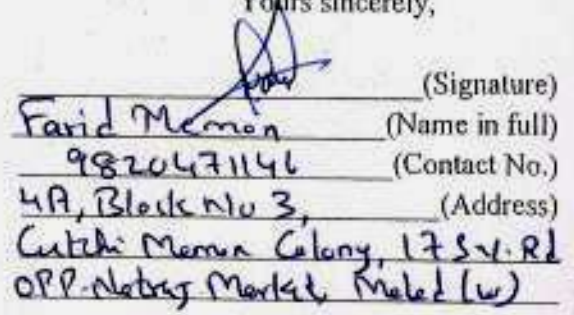 Yours sincerely,
(Signature)
Farid Memon (Name in full)
9820471146 (Contact No.)
4A, Block No 3, (Address)
Cutchi Memon Colony, 17 S.V. Rd
OPP. Natraj Market, Malad (W)